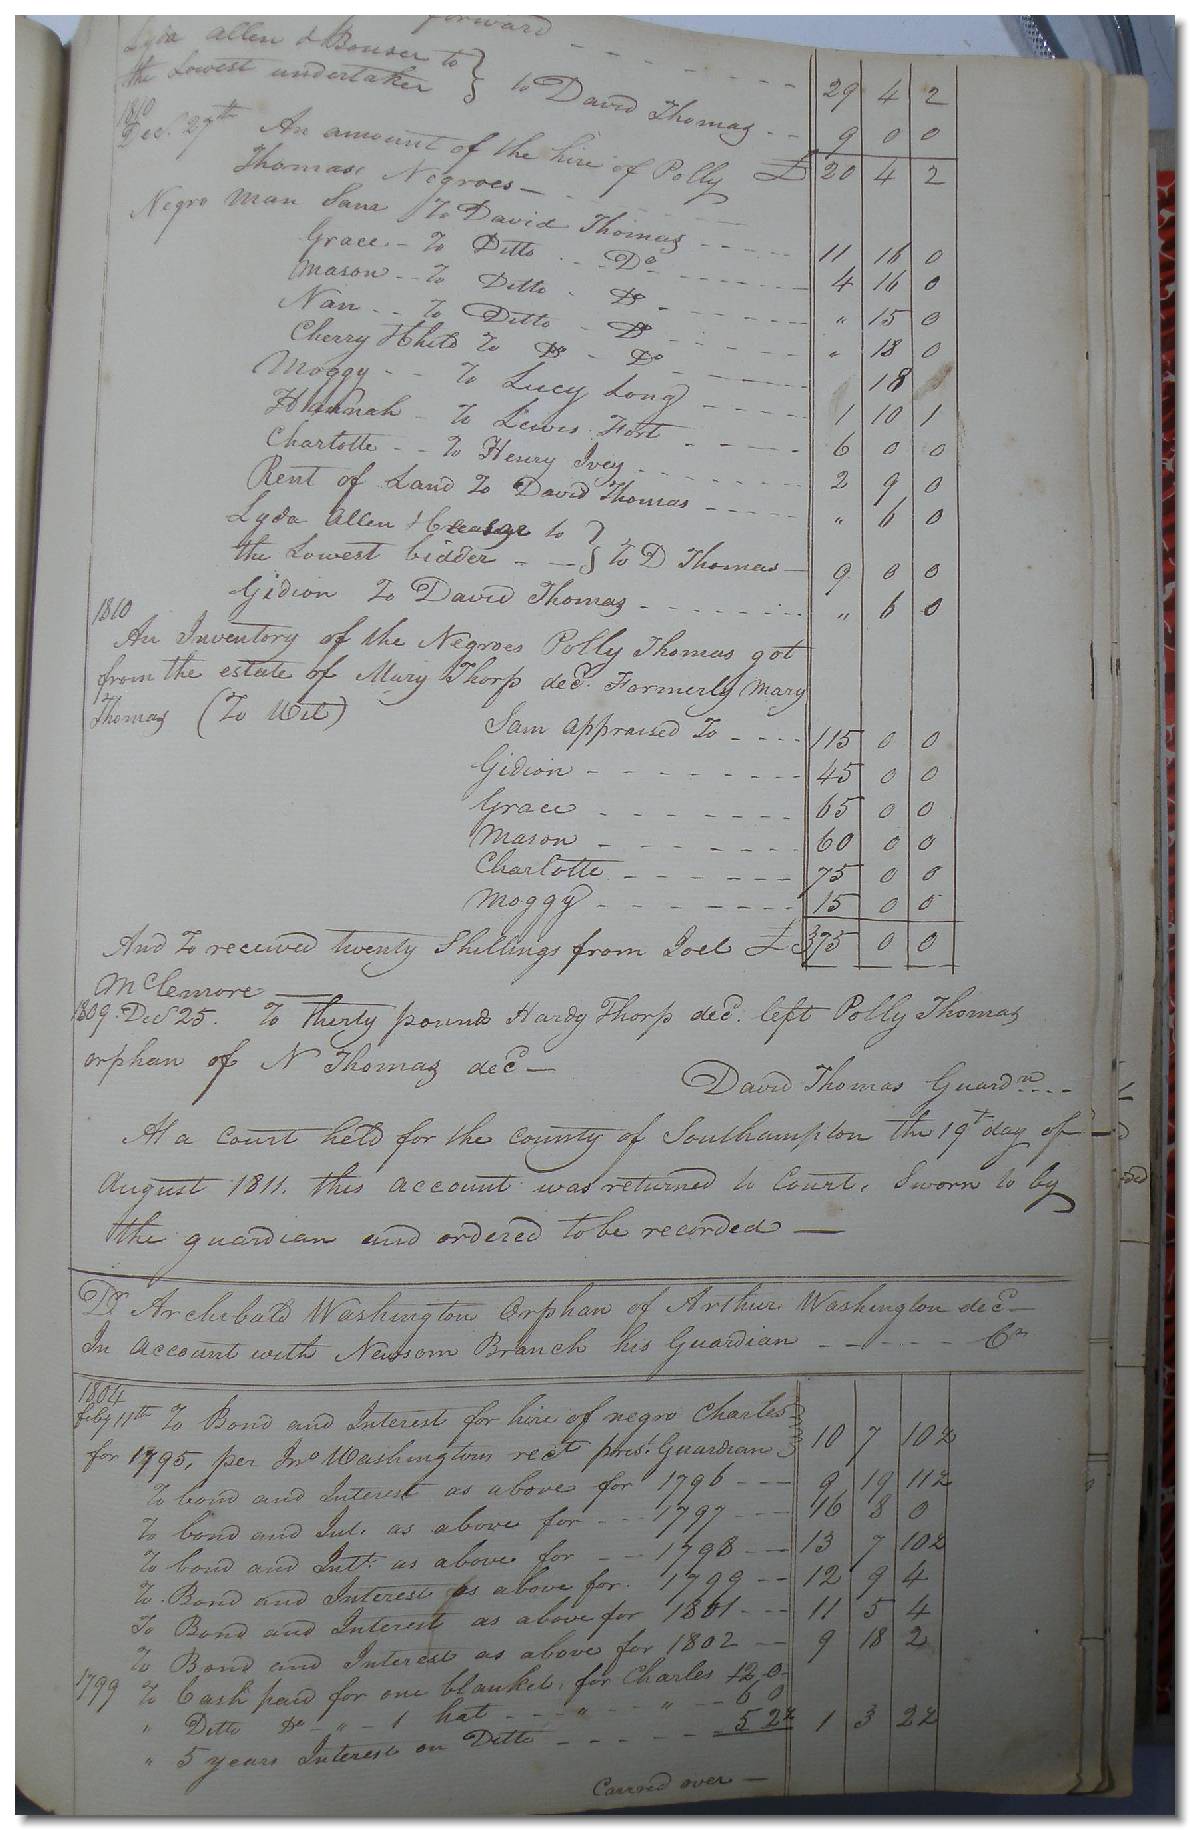 forward - - - - - - - 29 4 2
Lyda Allen & Bonser to } to David Thomas - - 9 0 0
the Lowest undertaker £ 20 4 2
1810
Decr. 27th An amount of the hire of Polly
Thomas Negroes —
Negro Man Sam To David Thomas - - - - 11 16 0
Grace - To Ditto - - Do - - - - 4 16 0
Mason - - To Ditto - Do - - - - " 15 0
Nan - - To Ditto - Do - - - - " 18 0
Cherry & Child To Do - Do - - - - 18
Moggy - - To Lucy Long - - - - 1 10 1
Hannah - To Lewis Fort - - - - 6 0 0
Charlotte - - To Henry Ivey - - - - 2 9 0
Rent of Land To David Thomas - - - - " 6 0
Lyda Allen & to } to D Thomas — 9 0 0
the Lowest bidder - - —
Gidion To David Thomas - - - - - - " 6 0
1810
An Inventory of the Negroes Polly Thomas got
from the estate of Mary Thorp decd. Formerly Mary
Thomas (To Wit)
Sam appraised To - - - - 115 0 0
Gidion - - - - - - - 45 0 0
Grace - - - - - - - 65 0 0
Mason - - - - - - - 60 0 0
Charlotte - - - - - - - 75 0 0
Moggy - - - - - - - - 15 0 0
And To received twenty Shillings from Joel £ 375 0 0
McClemore —
1809. Decr 25. To thirty pound Hardy Thorp decd. left Polly Thomas
orphan of N Thomas decd —
David Thomas Guardn - - -
At a Court held for the County of Southampton the 19t day of
August 1811. this account was returned to Court, Sworn to by
the guardian and ordered to be recorded —
Dr Archibald Washington Orphan of Arthur Washington decd —
In account with Newsom Branch his Guardian - - - - - Cr
1804
Feby 11th To Bond and Interest for hire of negro Charles
for 1795, per Jno Washingtons rect Guardian } 10 7 10 2
To bond and Interest as above for 1796 - - - 9 19 11 2
To bond and Int. as above for - - - 1797 - - - 16 8 0
To bond and Intt. as above for - - - 1798 - - - 13 7 10 2
To Bond and Interest as above for 1799 - - 12 9 4
To Bond and Interest as above for 1801 - - - 11 5 4
To Bond and Interest as above for 1802 - - 9 18 2
1799 To Cash paid for one blanket, for Charles 12 0
" Ditto Do - " - 1 hat - - - " - - " - - 6 0
" 5 years Interest on Ditto - - - - - - 5 2 2 1 3 2 2
Carried over —